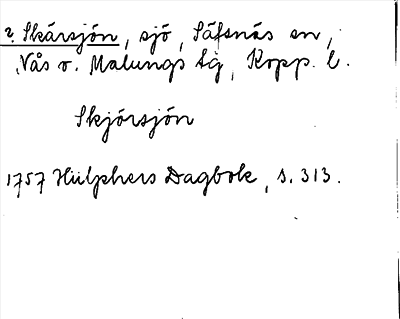 ? Skärsjön, sjö, Säfsnäs sn,
Nås o. Malungs tg, Kopp. l.
Skjörsjön
1757 Hülphers Dagbok, s. 313.